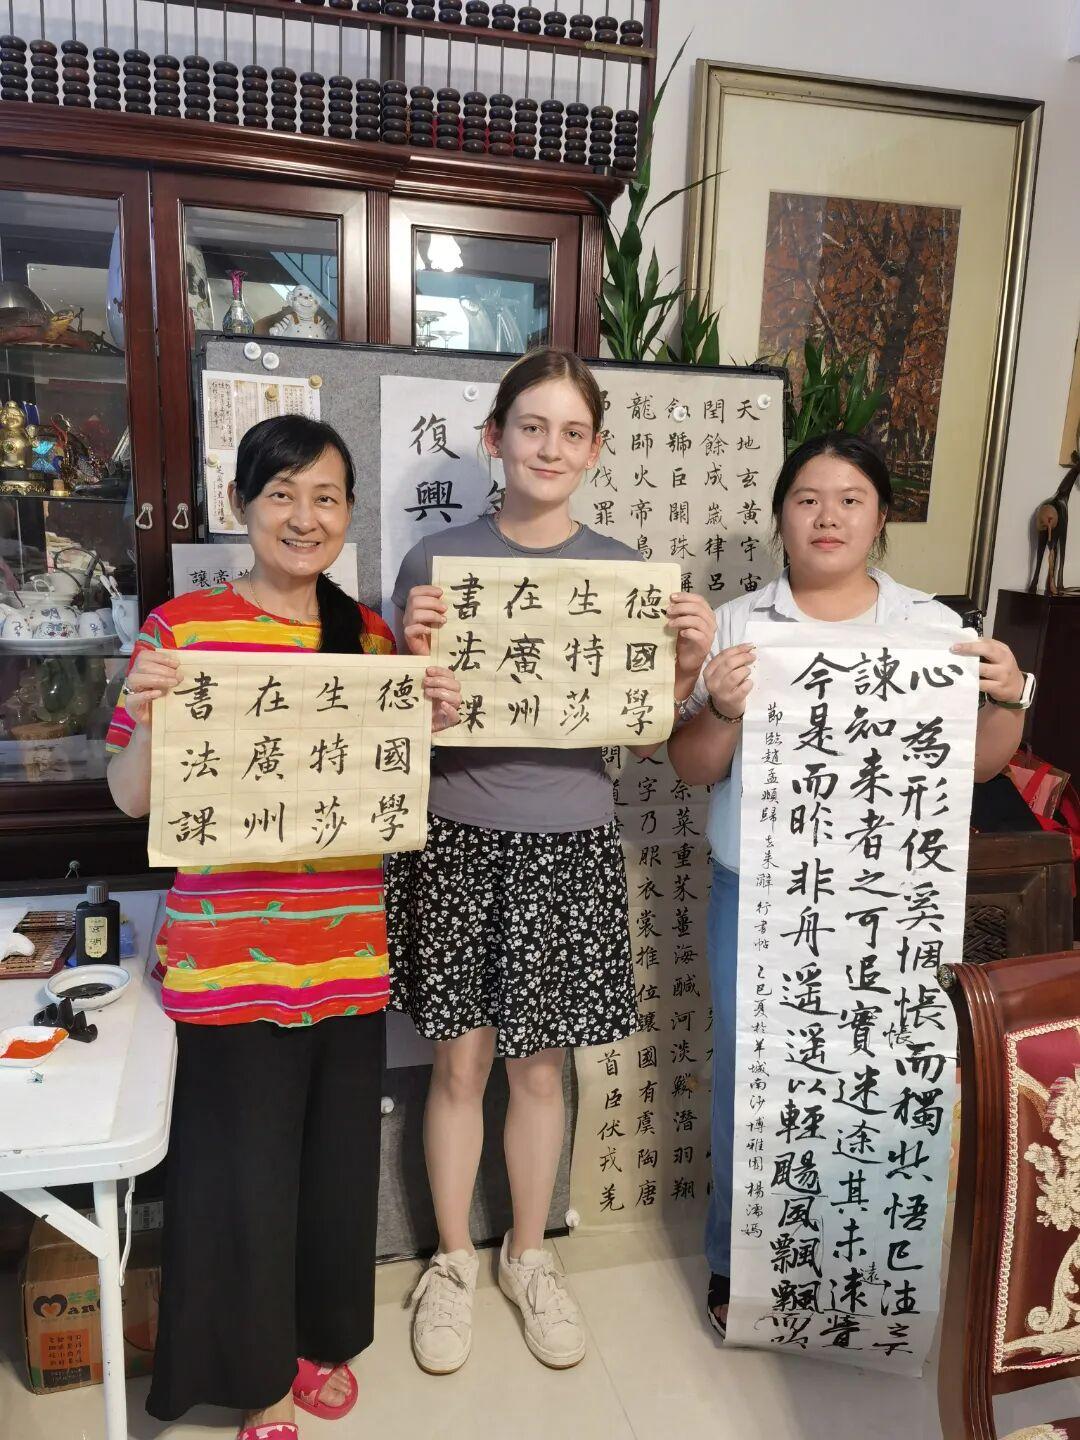 德國學
生特莎
在廣州
書法課
德國學
生特莎
在廣州
書法課
心為形役奚惆悵而獨悲悟已往之不
諫知来者之可追實迷途其未遠覺
今是而昨非舟遥遥以輕颺風飄飄而吹
悵
遠
節臨趙孟頫歸去来辭行書帖 乙巳夏於羊城南沙博雅園
復興
天地玄黃宇宙
閏餘成歲律呂
號巨闕珠
龍師火帝鳥
伐罪
奈菜重芥薑海鹹河淡鱗潛羽翔
字乃服衣裳推位讓國有虞陶唐
問道
首臣伏戎羌
讓帝